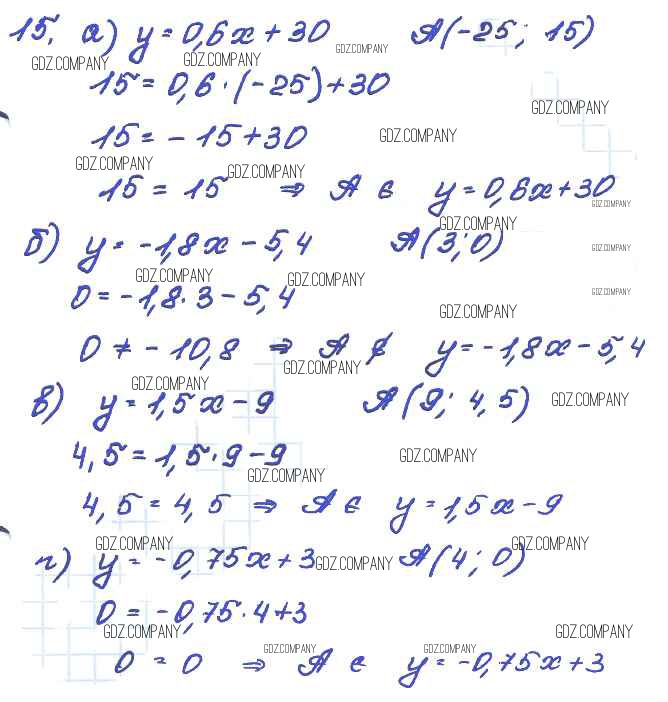 15. а) y = 0,6x + 30 A(-25; 15)
GDZ.COMPANY GDZ.COMPANY GDZ.COMPANY
15 = 0,6 · (-25) + 30
GDZ.COMPANY
15 = -15 + 30 GDZ.COMPANY
GDZ.COMPANY GDZ.COMPANY
15 = 15 ⇒ A ∈ y = 0,6x + 30
GDZ.COMPANY
GDZ.COMPANY
б) y = -1,8x - 5,4 A(3; 0) GDZ.COMPANY
GDZ.COMPANY GDZ.COMPANY
0 = -1,8 · 3 - 5,4 GDZ.COMPANY
GDZ.COMPANY
0 ≠ -10,8 ⇒ A ∉ y = -1,8x - 5,4
GDZ.COMPANY
GDZ.COMPANY
в) y = 1,5x - 9 A(9; 4,5) GDZ.COMPANY
4,5 = 1,5 · 9 - 9 GDZ.COMPANY
GDZ.COMPANY
4,5 = 4,5 ⇒ A ∈ y = 1,5x - 9
GDZ.COMPANY GDZ.COMPANY
г) y = -0,75x + 3 GDZ.COMPANY A(4; 0)
0 = -0,75 · 4 + 3
GDZ.COMPANY GDZ.COMPANY
GDZ.COMPANY GDZ.COMPANY
0 = 0 ⇒ A ∈ y = -0,75x + 3